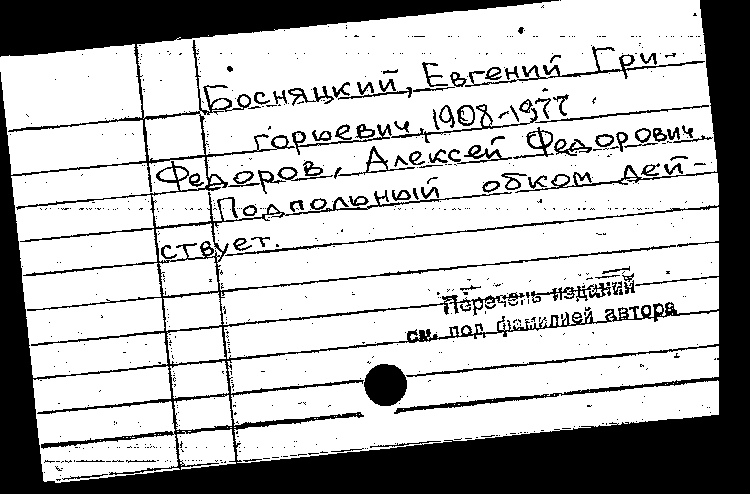 Босняцкий, Евгений Гри-
горьевич, 1908-1977
Федоров, Алексей Федорович.
Подпольный обком дей-
ствует.
Перечень изданий
см. под фамилией автора